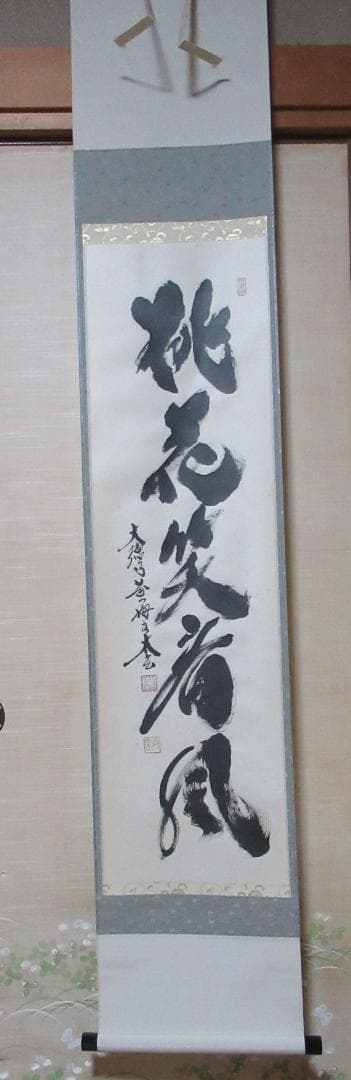 桃花笑春風
大徳寺